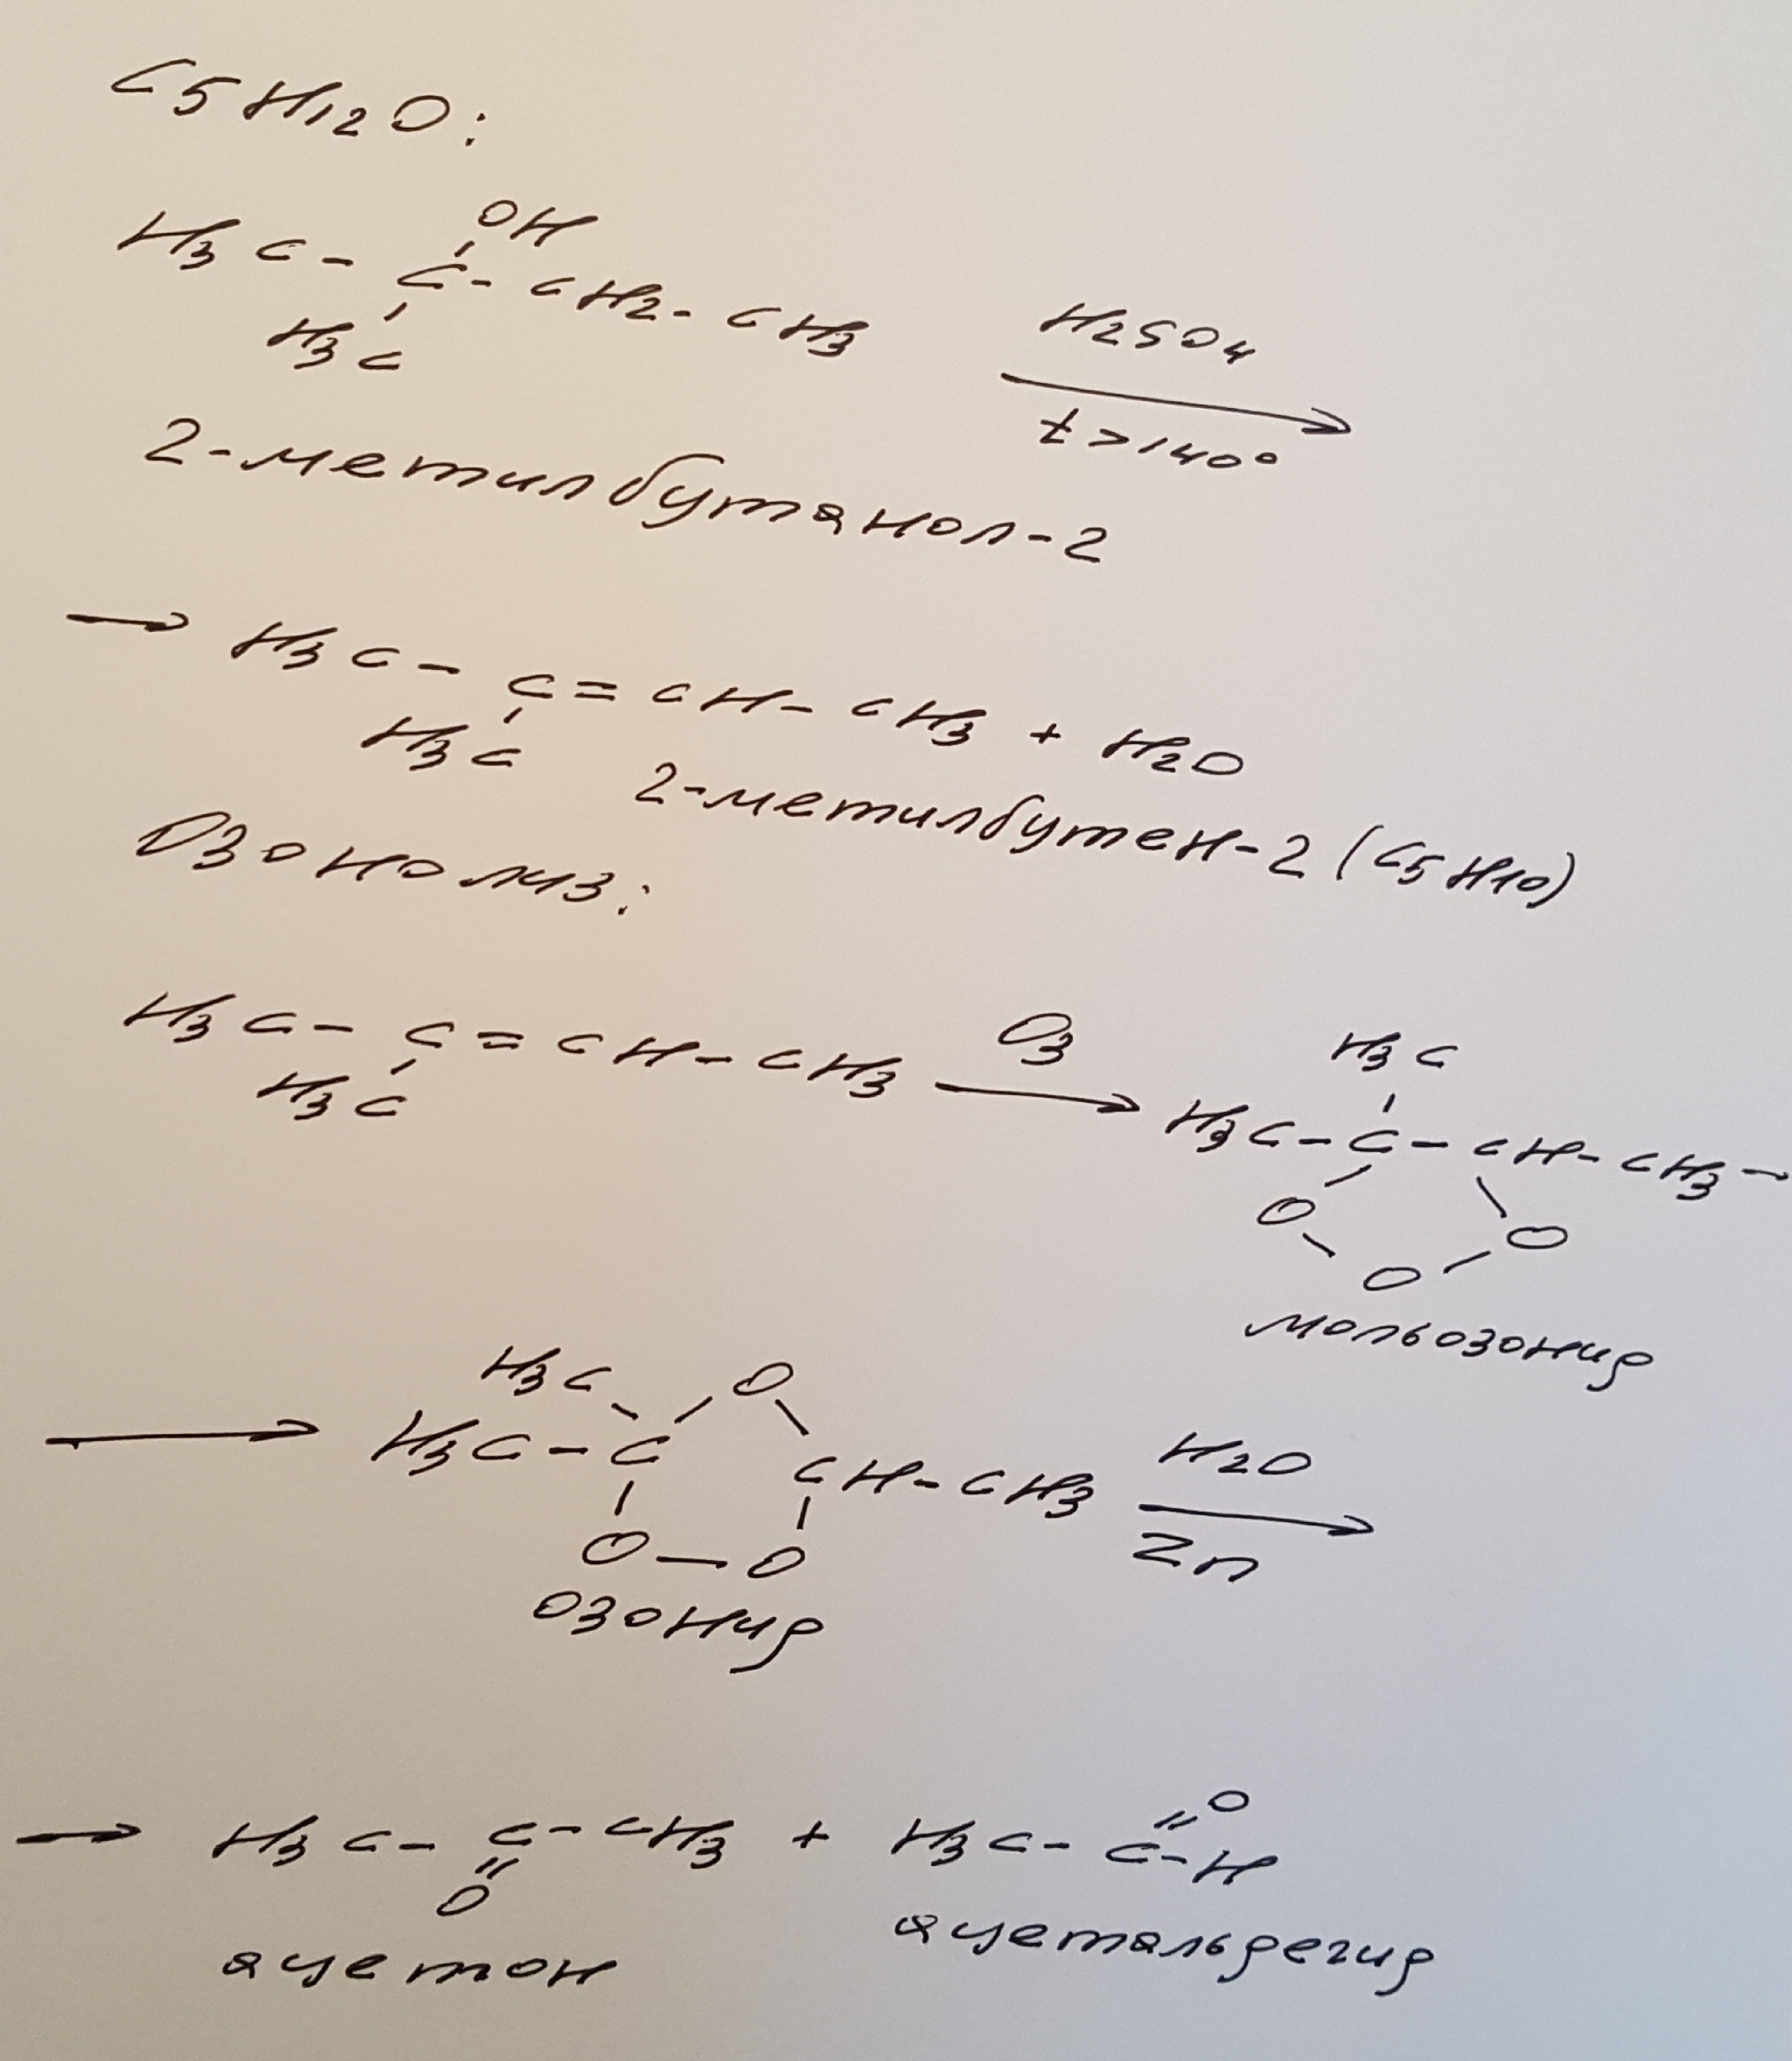 C5H12O:
OH
H3C - C - CH2 - CH3
H3C
H2SO4
t > 140°
2-метилбутанол-2
→ H3C - C = CH - CH3 + H2O
H3C
2-метилбутен-2 (C5H10)
Озонолиз:
H3C - C = CH - CH3
H3C
O3
H3C
H3C - C - CH - CH3 →
O O
O
мольозонид
H3C O
→ H3C - C CH - CH3
O — O
H2O
Zn
озонид
→ H3C - C - CH3 + H3C - C - H
O
O
ацетон
ацетальдегид